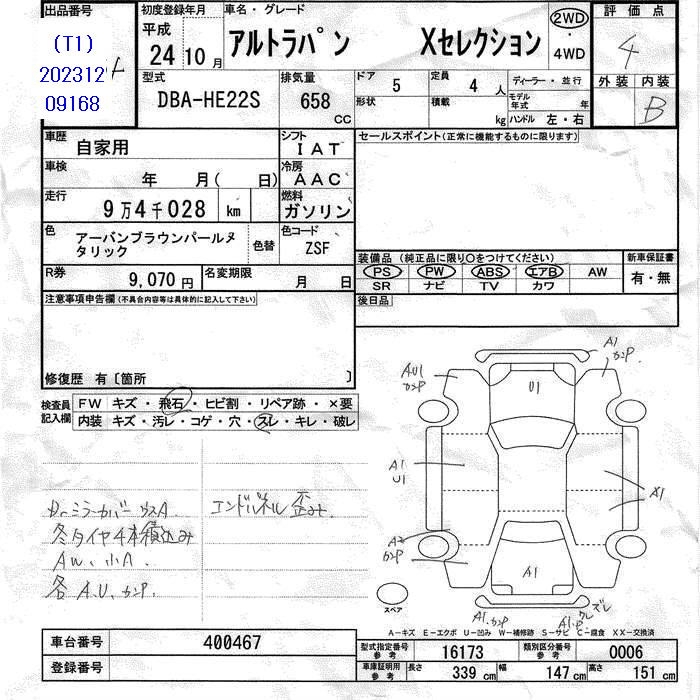 出品番号
(T1)
202312
09168
初度登録年月
平成
24 10 月
車名・グレード
アルトラパン Xセレクション
2WD
・
4WD
評価点
4
外装 内装
B
型式
DBA-HE22S
排気量
658
CC
ドア 5
定員 4 人
ディーラー・並行
形状
積載 kg
モデル年式 年
ハンドル 左・右
車歴
自家用
シフト
IAT
セールスポイント(正常に機能するものに限ります)
車検
年 月( 日)
冷房
AAC
走行
9万4千028 km
燃料
ガソリン
色
アーバンブラウンパールメタリック
色替
色コード
ZSF
装備品 (純正品に限り○をつけてください)
新車保証書
PS PW ABS エアB AW
SR ナビ TV カワ
有・無
R券
9,070 円
名変期限
月 日
後日品
注意事項申告欄(不具合内容等は具体的に記入して下さい)
修復歴 有〔箇所 〕
検査員記入欄
FW キズ・飛石・ヒビ割・リペア跡・×要
内装 キズ・汚レ・コゲ・穴・スレ・キレ・破レ
A1
カンP
AU1
カンP
U1
A1
U1
A1
A2
カンP
A1
A1.カンP
A1.P
ズレ
スペア
エンドパネル歪み
冬タイヤ4本積込み
AW、小A
各A.U、カンP.
A-キズ E-エクボ U-凹み W-補修跡 S-サビ C-腐食 XX-交換済
車台番号
400467
登録番号
型式指定番号
参考
16173
類別区分番号
参考
0006
車庫証明用
参考
長さ 339 cm
幅 147 cm
高さ 151 cm